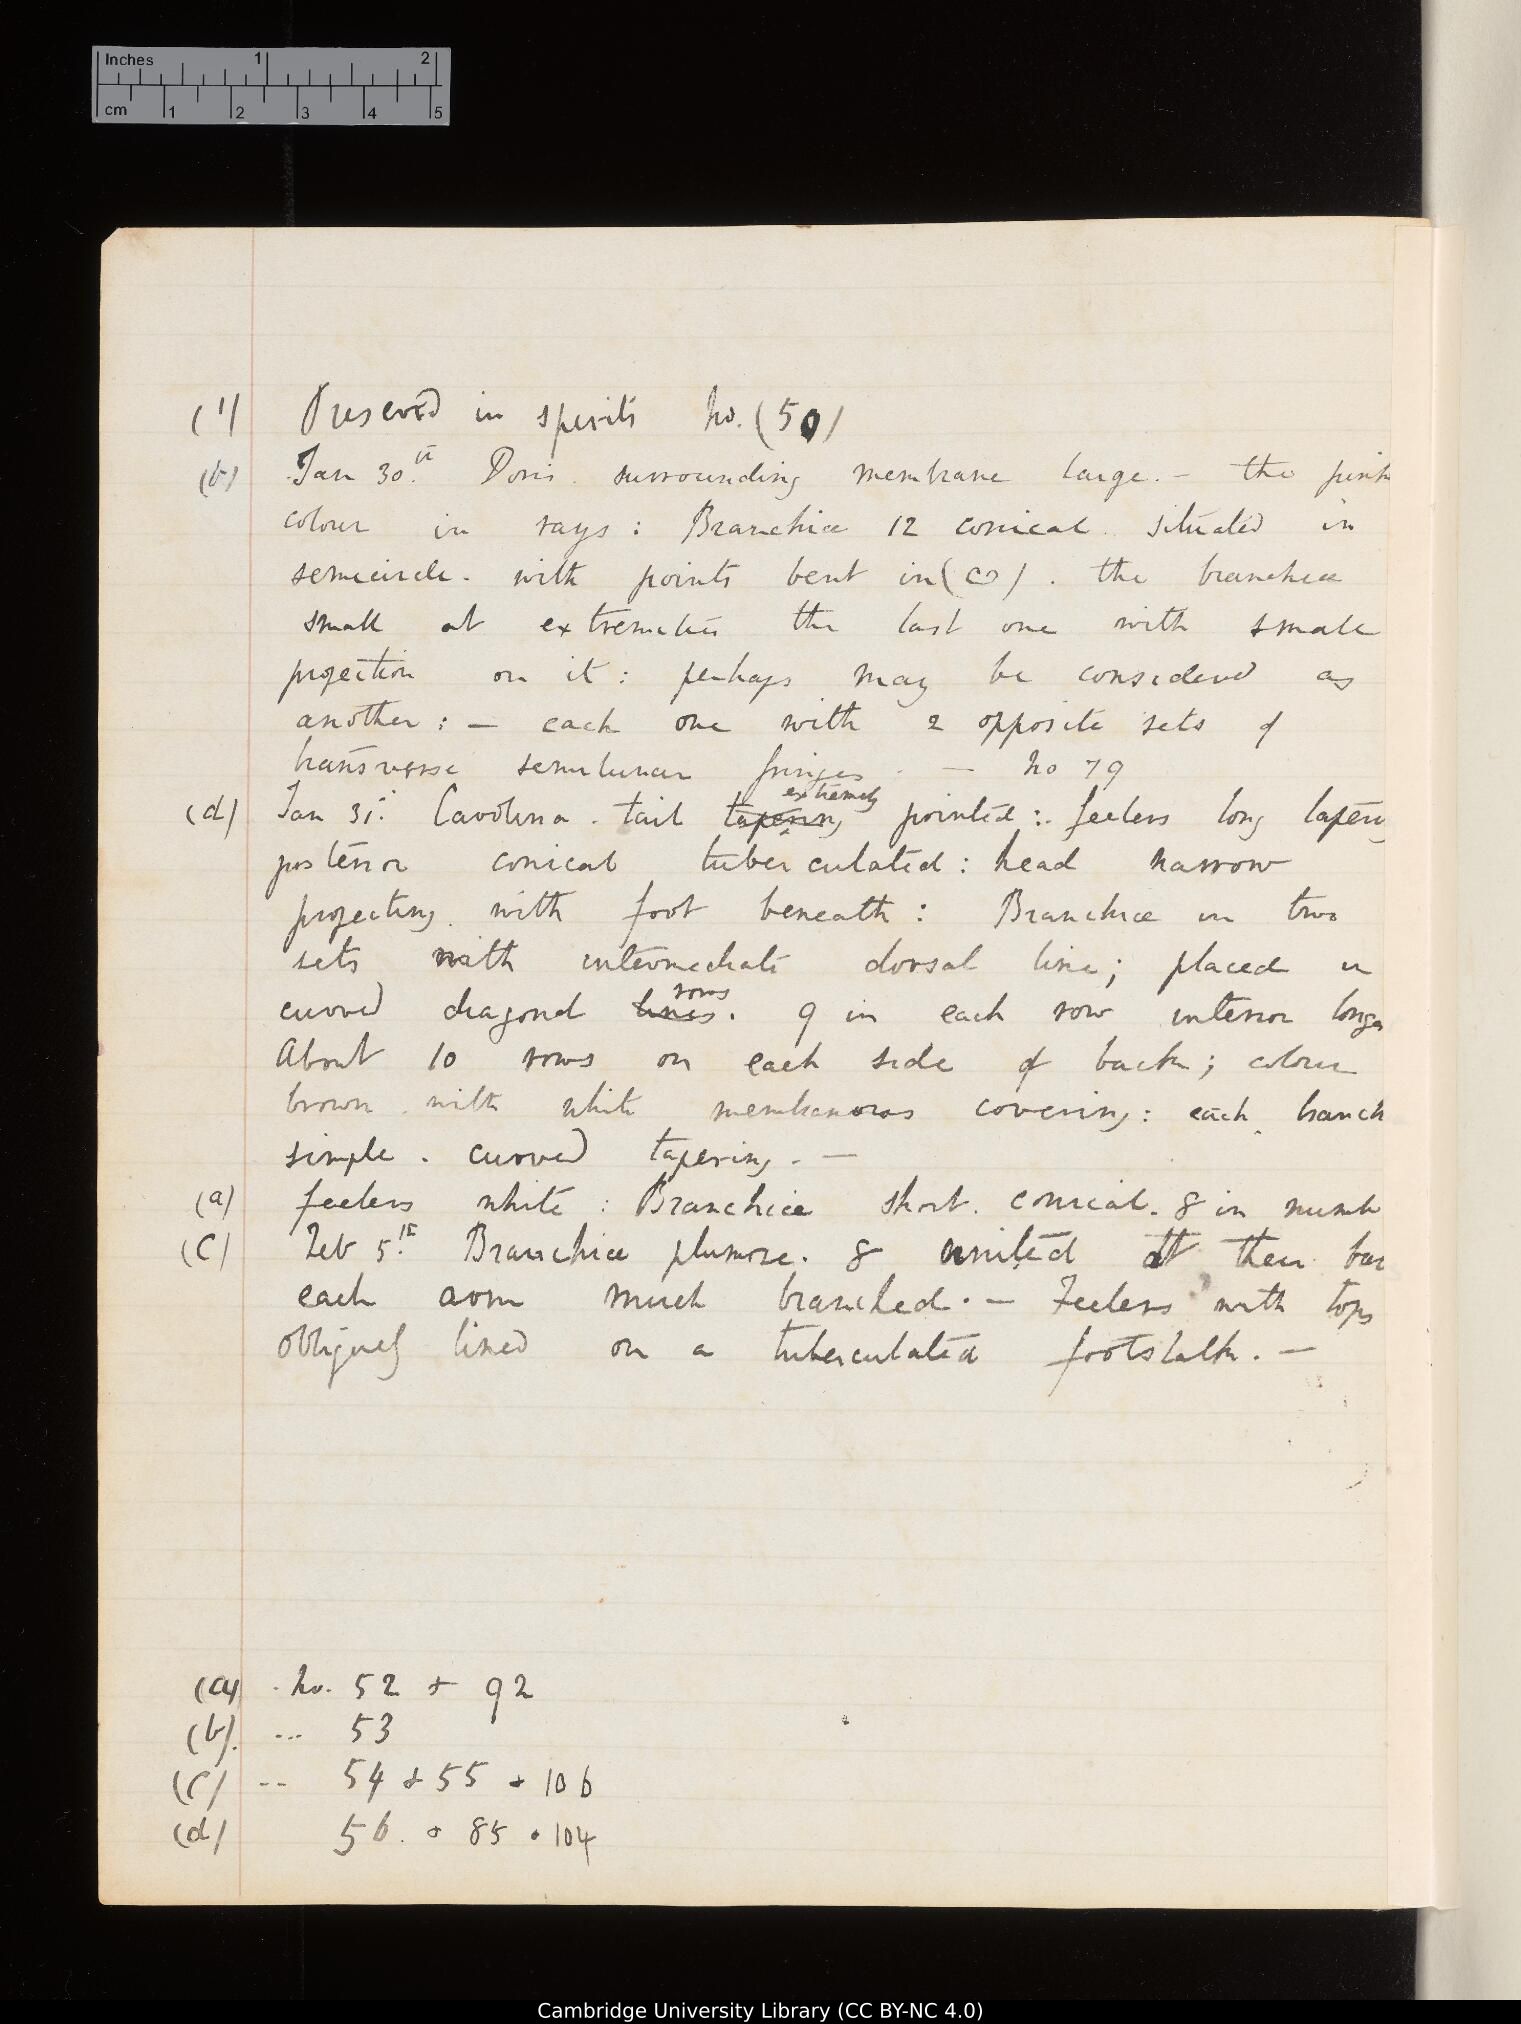 Inches 1 2
cm 1 2 3 4 5
(1) Preserved in spirits No. (50)
(b) Jan 30th. Doris. surrounding membrane large. — the pink
colour in rays: Branchiæ 12 conical. situated in
semicircle. with points bent in ( ). the branchiæ
small at extremities the last one with small
projection on it: perhaps may be considered as
another: — each one with 2 opposite sets of
transverse semilunar fringes. — No 79
(d) Jan 31st. Cavolina. tail tapering extremely pointed: feelers long tapering
posterior conical tuberculated: head narrow
projecting with foot beneath: Branchiæ in two
sets with intermediate dorsal line; placed in
curved diagonal lines rows. 9 in each row interior longer
About 10 rows on each side of back; colour
brown with white membranous covering: each branch
simple. curved tapering. —
(a) feelers white: Branchiæ short. conical. 8 in numb
(C) Feb 5th. Branchiæ plumose. 8 united at their bas
each arm much branched. — Feelers with tops
obliquely lined on a tuberculated footstalk. —
(a) No. 52 & 92
(b). ... 53
(c) -- 54 & 55 & 106
(d) 56. & 85 & 104
Cambridge University Library (CC BY-NC 4.0)